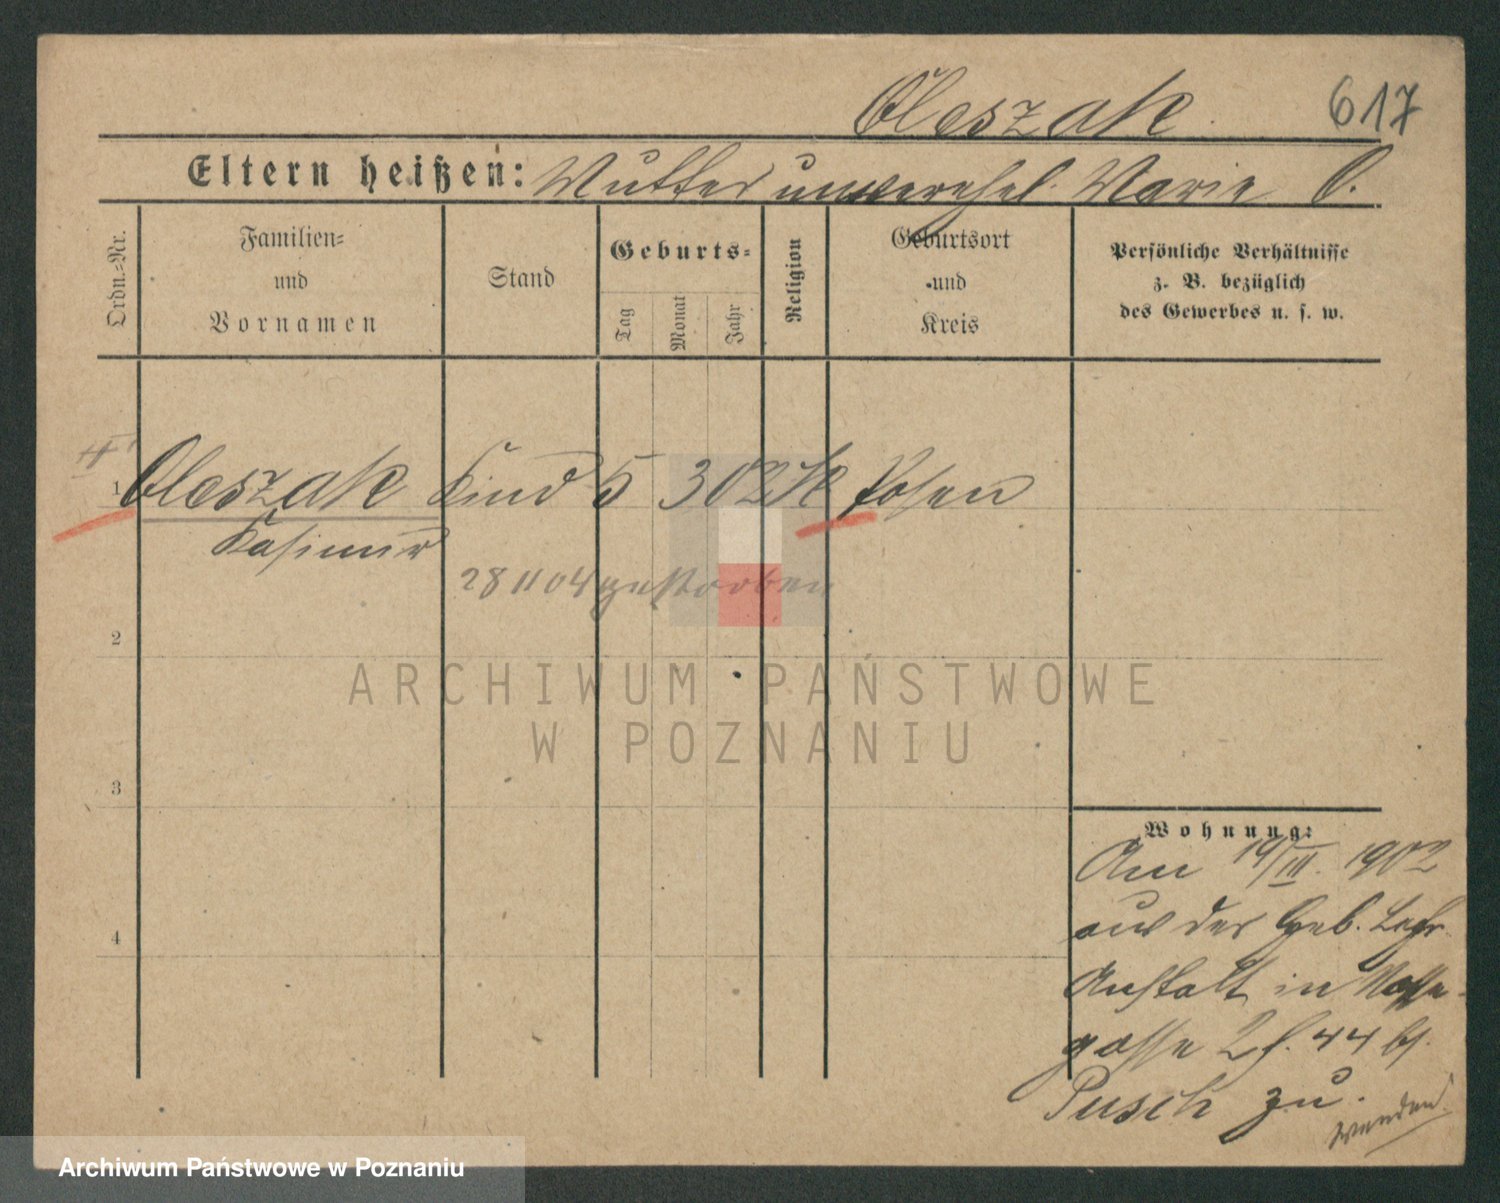 Oleszak 617
Eltern heißen: Mutter unverehel. Marie O.
Ordn.-Nr.
Familien-
und
Vornamen
Stand
Geburts-
Tag
Monat
Jahr
Religion
Geburtsort
und
Kreis
Persönliche Verhältnisse
z. B. bezüglich
des Gewerbes u. s. w.
1 Oleszak Kind 5 3 02 K Posen
Kasimir
28 11 04 gestorben
2
ARCHIWUM PAŃSTWOWE
W POZNANIU
3
4
Wohnung:
Am 19/III. 1902
aus der Geb. Lehr
Anstalt in
gasse 44 bj.
Pusch zu.
wenden!
Archiwum Państwowe w Poznaniu